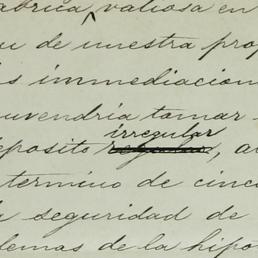 abrica, valiosa en
u de nuestra prop
s immediacion
nvendria tomar
irregular
eposito regular, a
termino de cinc
a seguridad de
demas de la hipo